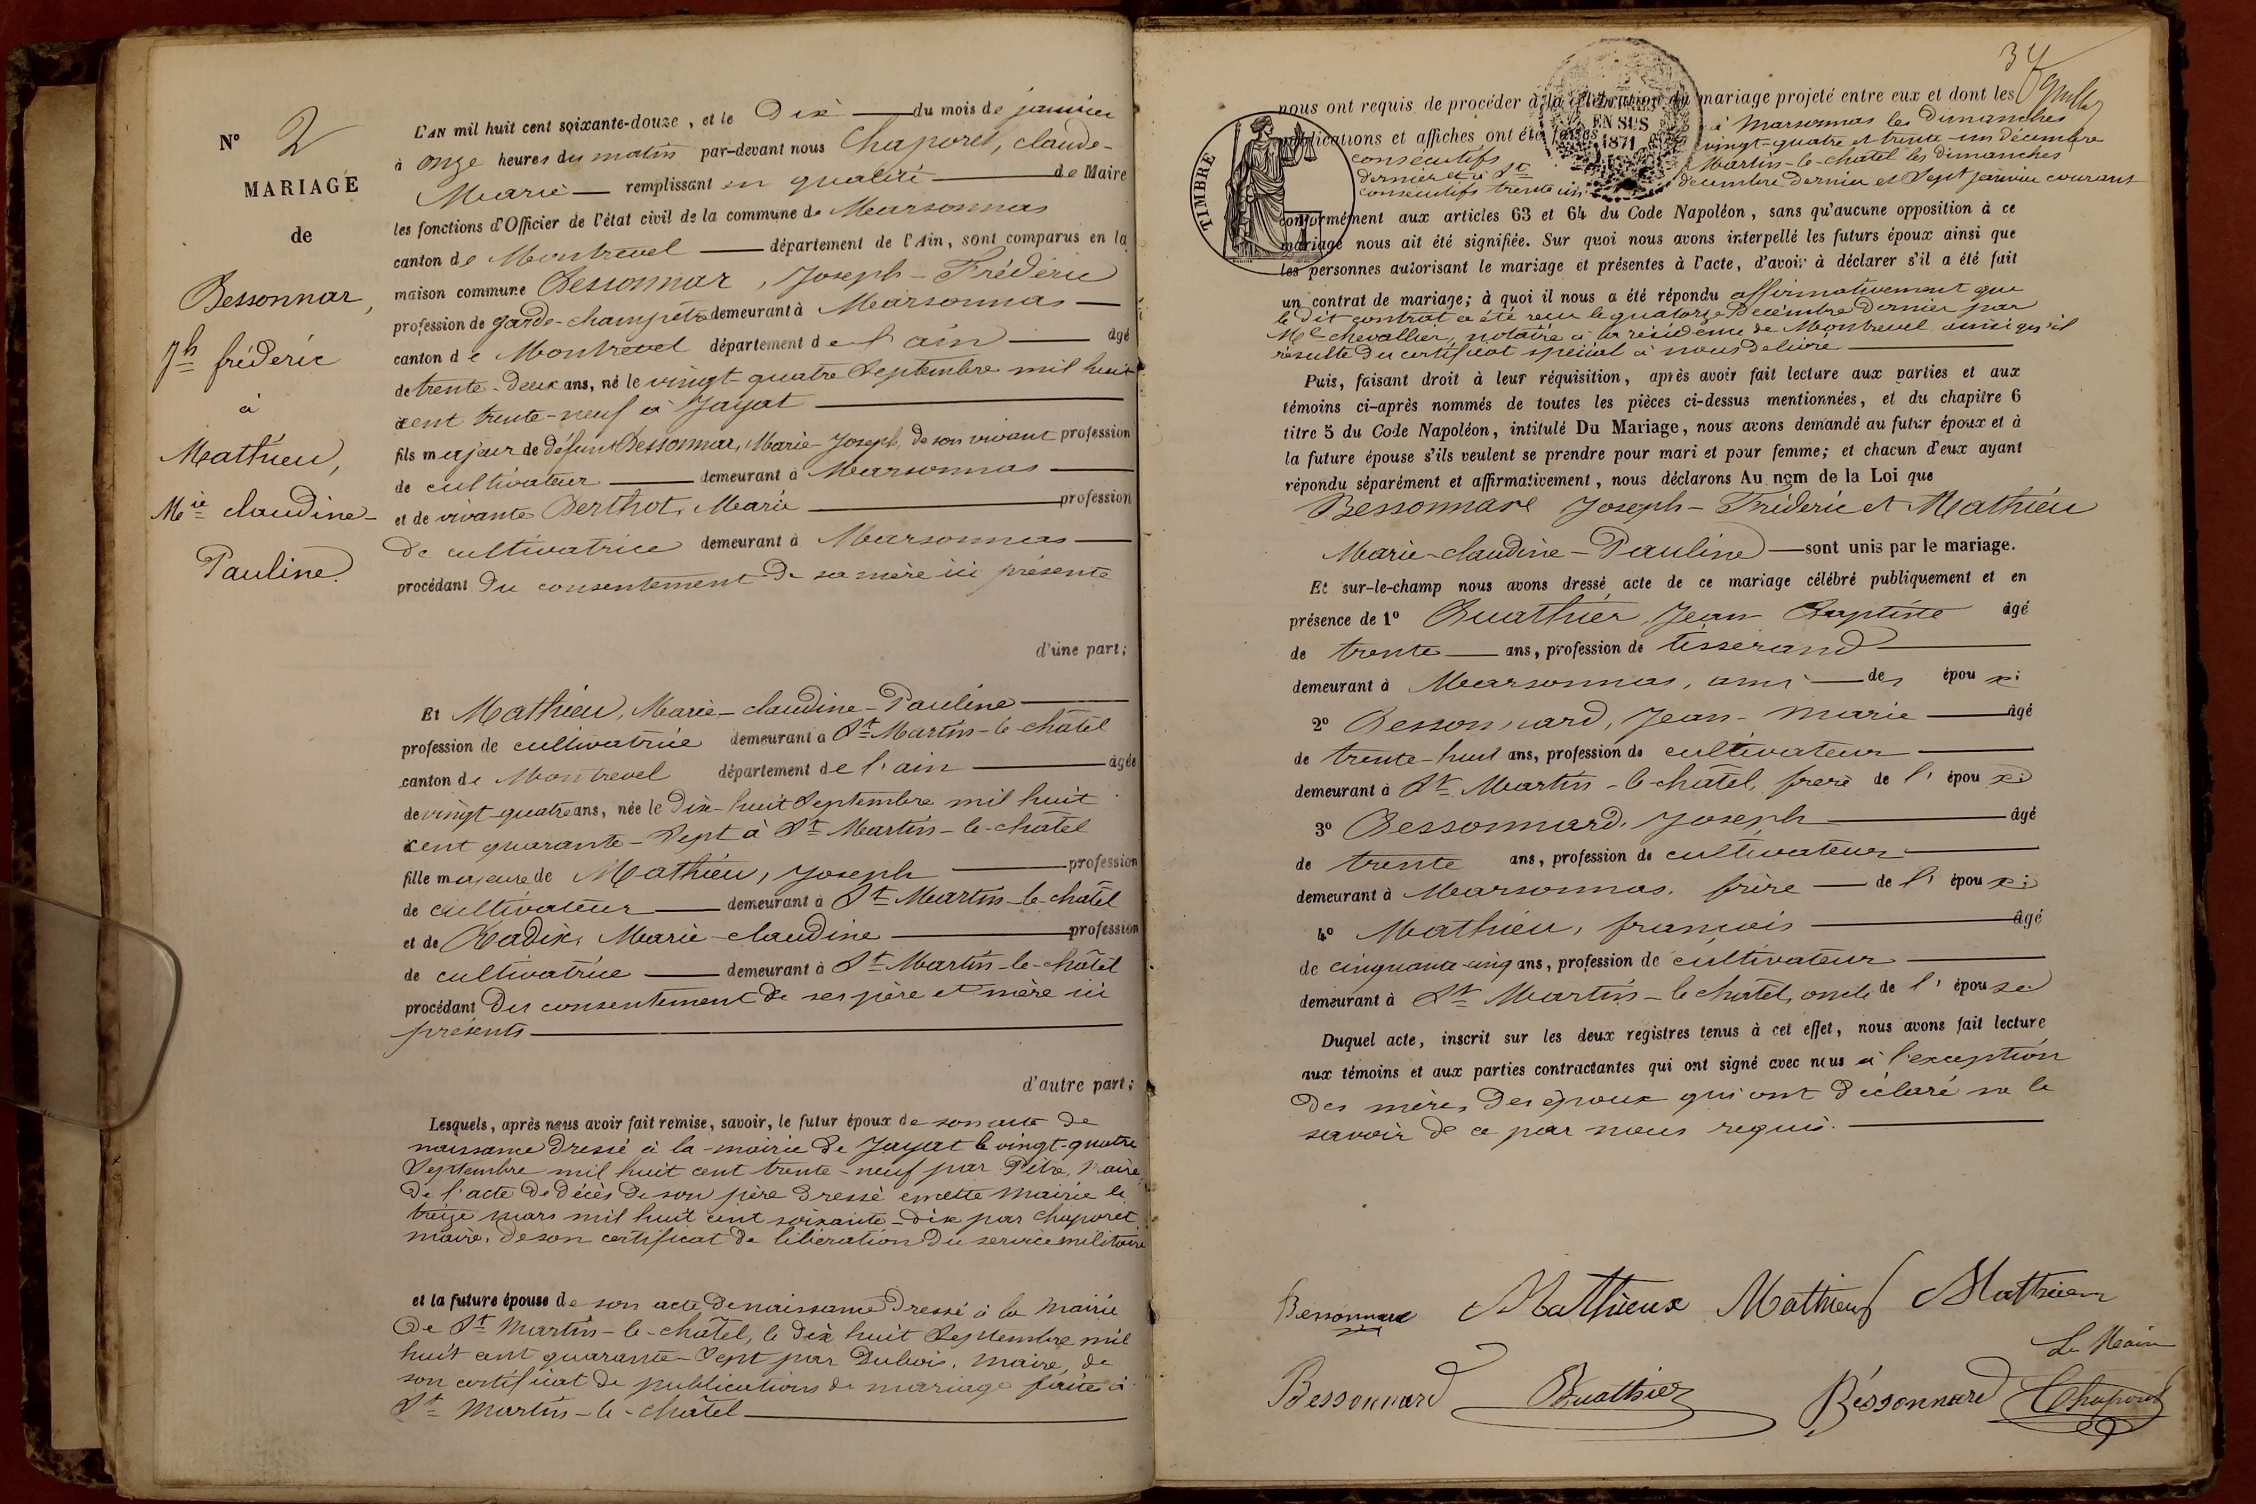 N° 2
MARIAGE
de
Bessonnar,
Jh fréderic
à
Mathieu,
Mie claudine-
Pauline.
L'AN mil huit cent soixante-douze, et le Dix du mois de janvier
à onze heures du matin par-devant nous Chaporet, claude-
Marie remplissant en qualité de Maire
les fonctions d'Officier de l'état civil de la commune de Marsonnas
canton de Montrevel département de l'Ain, sont comparus en la
maison commune Bessonnar, Joseph-Fréderic
profession de garde-champêtre demeurant à Marsonnas
canton de Montrevel département de l'ain âgé
de trente-deux ans, né le vingt-quatre Septembre mil huit
cent trente-neuf à Jayat
fils majeur de défunt Bessonnar, Marie-Joseph, de son vivant profession
de cultivateur demeurant à Marsonnas
et de vivante Berthot, Marie profession
de cultivatrice demeurant à Marsonnas
procédant du consentement de sa mère ici présente
d'une part;
Et Mathieu, Marie-claudine-Pauline
profession de cultivatrice demeurant à St Martin-le-châtel
canton de Montrevel département de l'ain âgée
de vingt-quatre ans, née le dix-huit Septembre mil huit
cent quarante-Sept à St Martin-le-châtel
fille majeure de Mathieu, Joseph profession
de cultivateur demeurant à St Martin-le-châtel
et de Radix, Marie-claudine profession
de cultivatrice demeurant à St Martin-le-châtel
procédant du consentement de ses père et mère ici
présents
d'autre part;
Lesquels, après nous avoir fait remise, savoir, le futur époux de son acte de
naissance dressé à la mairie de Jayat le vingt-quatre
Septembre mil huit cent trente-neuf par Pitre, Maire,
De l'acte de décès de son père dressé en cette Mairie le
treize mars mil huit cent soixante-dix par Chaporet
maire, de son certificat de libération du service militaire
et la future épouse de son acte de naissance dressé à la Mairie
De St Martin-le-châtel, le dix huit Septembre mil
huit cent quarante-Sept par Dubois, Maire, de
son certificat de publications de mariage faite à
St Martin-le-châtel
34
nous ont requis de procéder à la célébration du mariage projeté entre eux et dont les
publications et affiches ont été faites à Marsonnas les Dimanches
consécutifs vingt-quatre et trente-un décembre
dernier et à St Martin-le-châtel les dimanches
consécutifs trente un décembre dernier et Sept janvier courant
TIMBRE
EN SUS
1871
conformément aux articles 63 et 64 du Code Napoléon, sans qu'aucune opposition à ce
mariage nous ait été signifiée. Sur quoi nous avons interpellé les futurs époux ainsi que
les personnes autorisant le mariage et présentes à l'acte, d'avoir à déclarer s'il a été fait
un contrat de mariage; à quoi il nous a été répondu affirmativement que
le dit contrat a été reçu le quatorze Décembre dernier par
Me chevallier, notaire à la résidence de Montrevel ainsi qu'il
résulte du certificat spécial à nous délivré
Puis, faisant droit à leur réquisition, après avoir fait lecture aux parties et aux
témoins ci-après nommés de toutes les pièces ci-dessus mentionnées, et du chapitre 6
titre 5 du Code Napoléon, intitulé Du Mariage, nous avons demandé au futur époux et à
la future épouse s'ils veulent se prendre pour mari et pour femme; et chacun d'eux ayant
répondu séparément et affirmativement, nous déclarons Au nom de la Loi que
Bessonnare Joseph-Fréderic et Mathieu
Marie-claudine-Pauline sont unis par le mariage.
Et sur-le-champ nous avons dressé acte de ce mariage célébré publiquement et en
présence de 1° Buathier, Jean Baptiste âgé
de trente ans, profession de tisserand
demeurant à Marsonnas, ami des époux;
2° Bessonnard, Jean-Marie âgé
de trente-huit ans, profession de cultivateur
demeurant à St Martin-le-châtel, frere de l'époux;
3° Bessonnard, Joseph âgé
de trente ans, profession de cultivateur
demeurant à Marsonnas, frère de l'époux;
4° Mathieu, françois âgé
de cinquante-cinq ans, profession de cultivateur
demeurant à St Martin-le-châtel, oncle de l'épouse
Duquel acte, inscrit sur les deux registres tenus à cet effet, nous avons fait lecture
aux témoins et aux parties contractantes qui ont signé avec nous à l'exception
des mères des époux qui ont déclaré ne le
savoir de ce par nous requis.
Bessonnard Mathieux Mathieu Mathieu
Le Maire
Bessonnard Buathier Béssonnard Chaporet